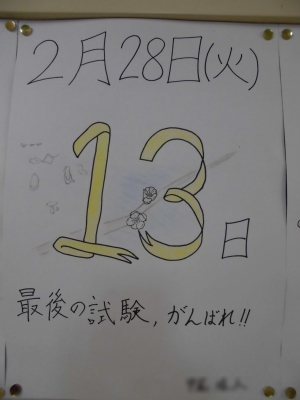 2月28日(火)
13日
最後の試験,がんばれ!!